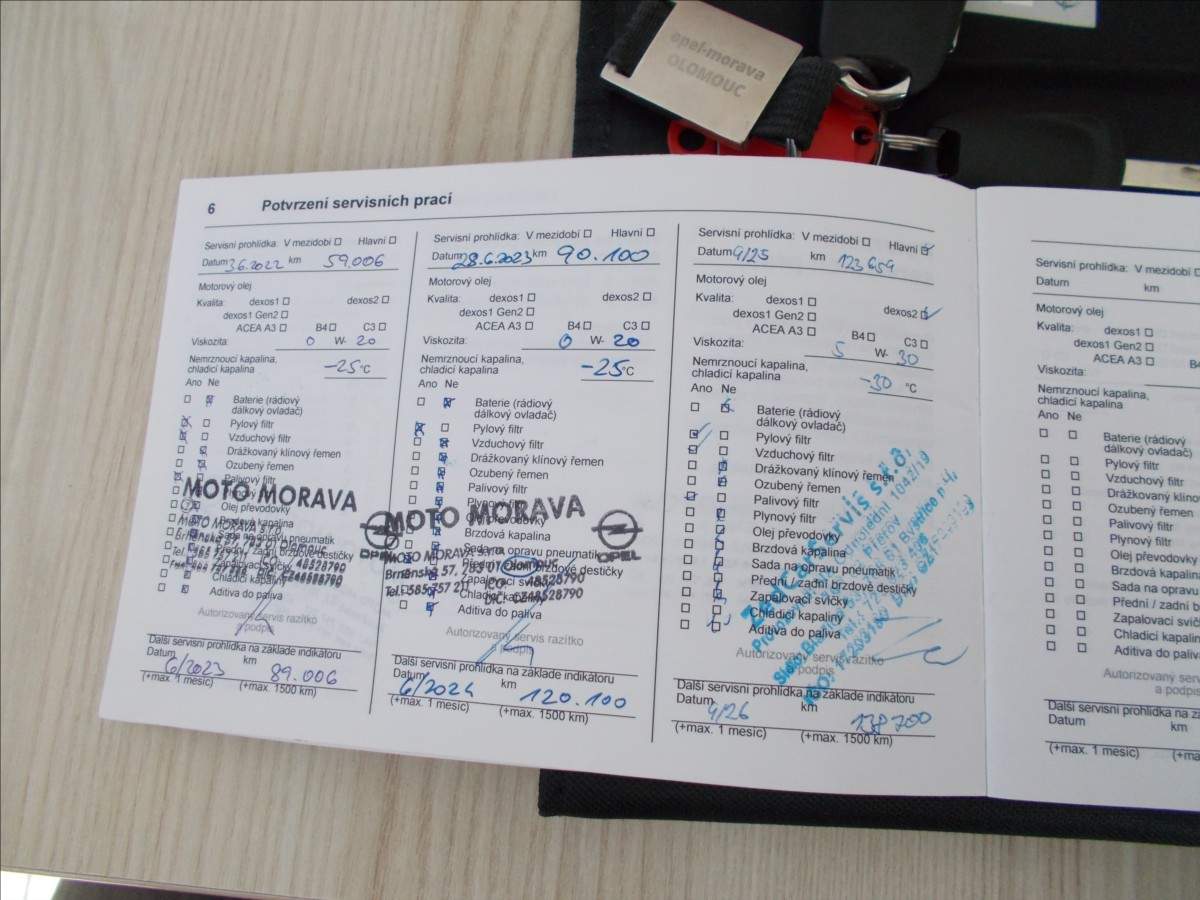 opel-morava
OLOMOUC
6 Potvrzení servisních prací
Servisní prohlídka: V mezidobí Hlavní
Datum 3.6.2022 km 59.006
Motorový olej
Kvalita: dexos1 dexos2
dexos1 Gen2
ACEA A3 B4 C3
Viskozita: 0 W- 20
Nemrznoucí kapalina,
chladicí kapalina -25 °C
Ano Ne
Baterie (rádiový
dálkový ovladač)
Pylový filtr
Vzduchový filtr
Drážkovaný klínový řemen
Ozubený řemen
Palivový filtr
MOTO MORAVA
Olej převodovky
Brzdová kapalina
MOTO MORAVA s.r.o.
Sada na opravu pneumatik
Brněnská 57, 783 01 Olomouc
Přední / zadní brzdové destičky
Zapalovací svíčky
Chladicí kapaliny
Aditiva do paliva
Autorizovaný servis razítko
a podpis
Další servisní prohlídka na základe indikátoru
Datum 6/2023 km 89.006
(+max. 1 mesíc) (+max. 1500 km)
Servisní prohlídka: V mezidobí Hlavní
Datum 28.6.2023 km 90.100
Motorový olej
Kvalita: dexos1 dexos2
dexos1 Gen2
ACEA A3 B4 C3
Viskozita: 0 W- 20
Nemrznoucí kapalina,
chladicí kapalina -25 °C
Ano Ne
Baterie (rádiový
dálkový ovladač)
Pylový filtr
Vzduchový filtr
Drážkovaný klínový řemen
Ozubený řemen
Palivový filtr
Plynový filtr
MOTO MORAVA
OPEL
Olej převodovky
Brzdová kapalina
Sada na opravu pneumatik
MOTO MORAVA s.r.o.
Přední / zadní brzdové destičky
Brněnská 57, 783 01 Olomouc
Zapalovací svíčky
Tel.: 585 757 211 IČO: 48528790
Chladicí kapaliny
DIČ: CZ48528790
Aditiva do paliva
Autorizovaný servis razítko
a podpis
Další servisní prohlídka na základe indikátoru
Datum 6/2024 km 120.100
(+max. 1 mesíc) (+max. 1500 km)
OPEL
Servisní prohlídka: V mezidobí Hlavní
Datum 4/25 km 123 659
Motorový olej
Kvalita: dexos1 dexos2
dexos1 Gen2
ACEA A3 B4 C3
Viskozita: 5 W- 30
Nemrznoucí kapalina,
chladicí kapalina -30 °C
Ano Ne
Baterie (rádiový
dálkový ovladač)
Pylový filtr
Vzduchový filtr
Drážkovaný klínový řemen
Ozubený řemen
Palivový filtr
Plynový filtr
Olej převodovky
Brzdová kapalina
Sada na opravu pneumatik
Přední / zadní brzdové destičky
Zapalovací svíčky
Chladicí kapaliny
Aditiva do paliva
Autorizovaný servis razítko
a podpis
Další servisní prohlídka na základe indikátoru
Datum 4/26 km 138 700
(+max. 1 mesíc) (+max. 1500 km)
Servisní prohlídka: V mezidobí
Datum km
Motorový olej
Kvalita: dexos1
dexos1 Gen2
ACEA A3
Viskozita:
Nemrznoucí kapalina,
chladicí kapalina
Ano Ne
Baterie (rádiový
dálkový ovladač)
Pylový filtr
Vzduchový filtr
Drážkovaný klínov
Ozubený řemen
Palivový filtr
Plynový filtr
Olej převodovky
Brzdová kapalina
Sada na opravu
Přední / zadní b
Zapalovací svíč
Chladicí kapali
Aditiva do paliv
Autorizovaný
a podpis
Další servisní prohlídka na zák
Datum km
(+max. 1 mesíc) (+ma